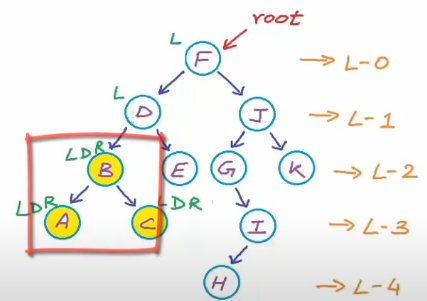 root
L F → L-0
L D J → L-1
LDR B E G K → L-2
LDR A C -DR I → L-3
H → L-4